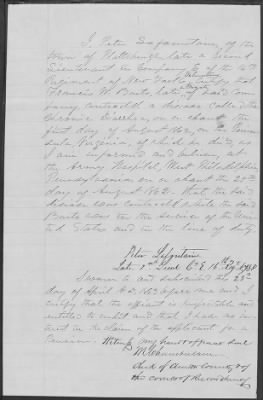 I, Peter Lafountain, of the
town of Plattsburgh, late a second
Lieutenant in Company E of the 16th
Regiment of New York Volunteers certify that
Francis W. Bents, late of said Com
pany contracted a disease called the
Chronic Diarrhea, on or about the
first day of August 1862, on the Penin
sula Virginia, of which he died, as
I am informed and believe, at
the Army Hospital, West Philadelphia
Pennsylvania on or about the 29th
day of August 1862. that the said
disease was contracted while the said
Bents was in the service of the Uni
ted States and in the line of duty
Peter Lafontaine
Late 2nd Lieut Co E 16th Regt NYSV
Sworn to and subscribed this 23d
day of April A.D. 1863 before me and I
certify that the affiant is respectable and
entitled to credit and that I had no in
terest in the claim of the applicant for a
Pension. Witness my hand & official seal
Clerk of Clinton County &
of the courts of Record thereof